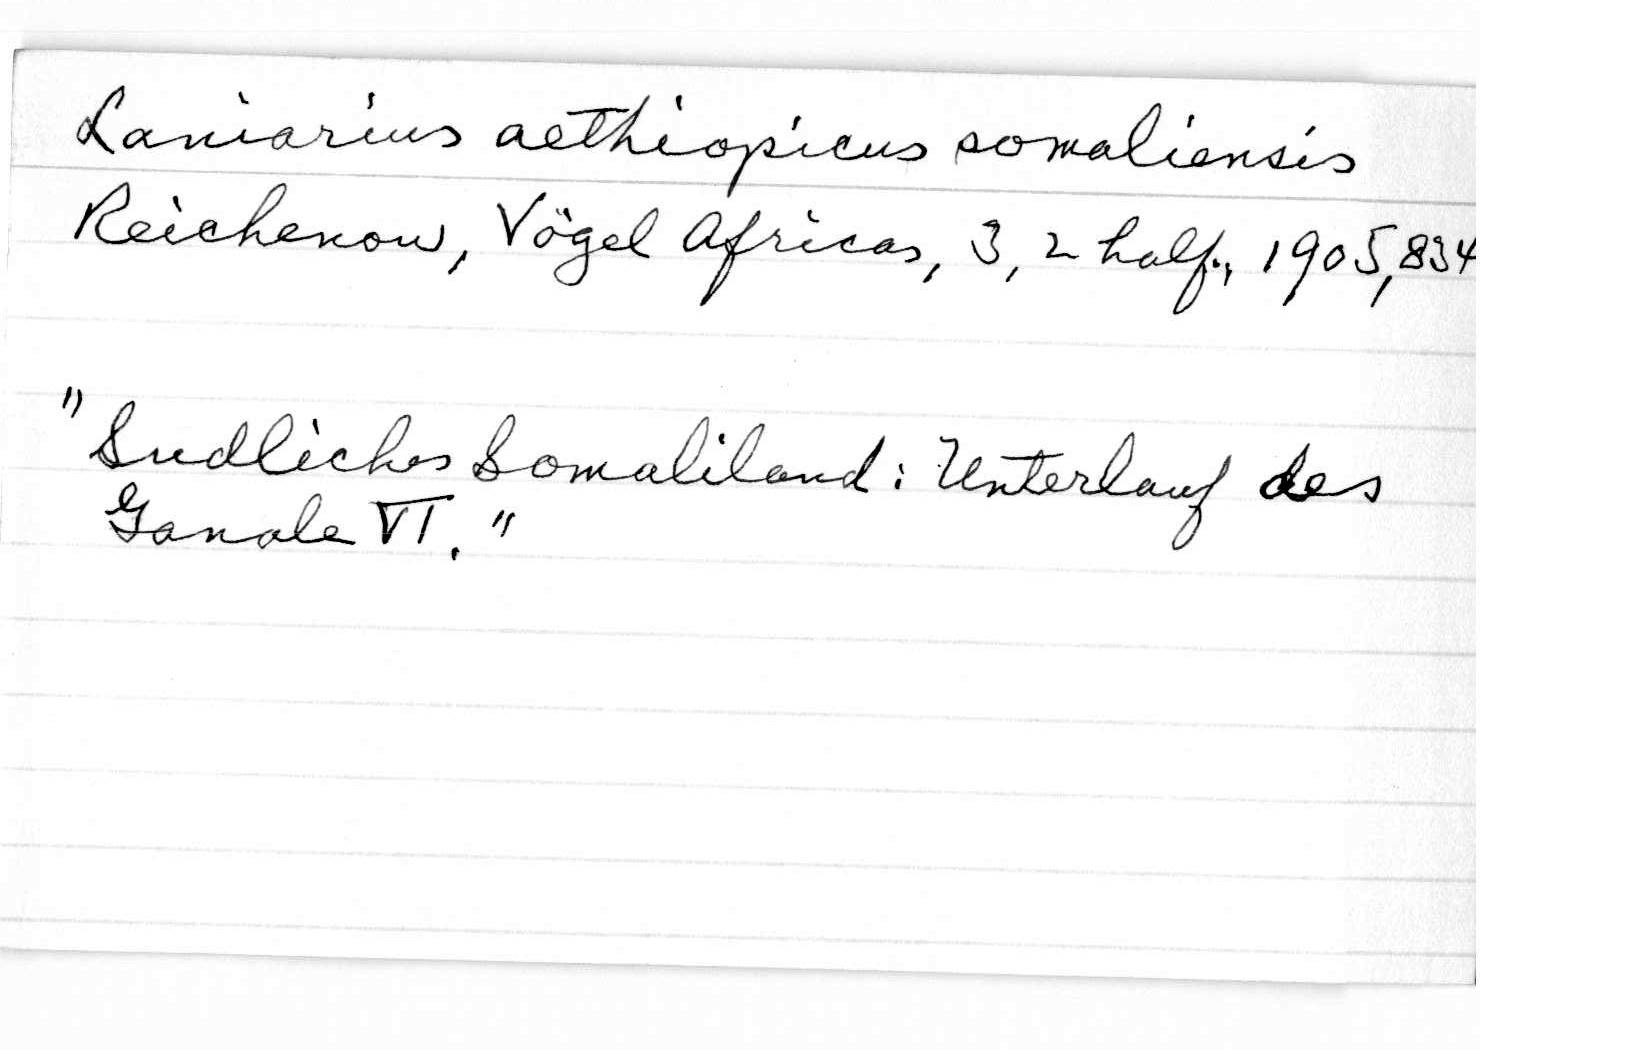 Laniarius aethiopicus somaliensis
Reichenow, Vögel Africas, 3, 2 half., 1905, 834
"Sudliches Somaliland: Unterlauf des
Ganale VI."